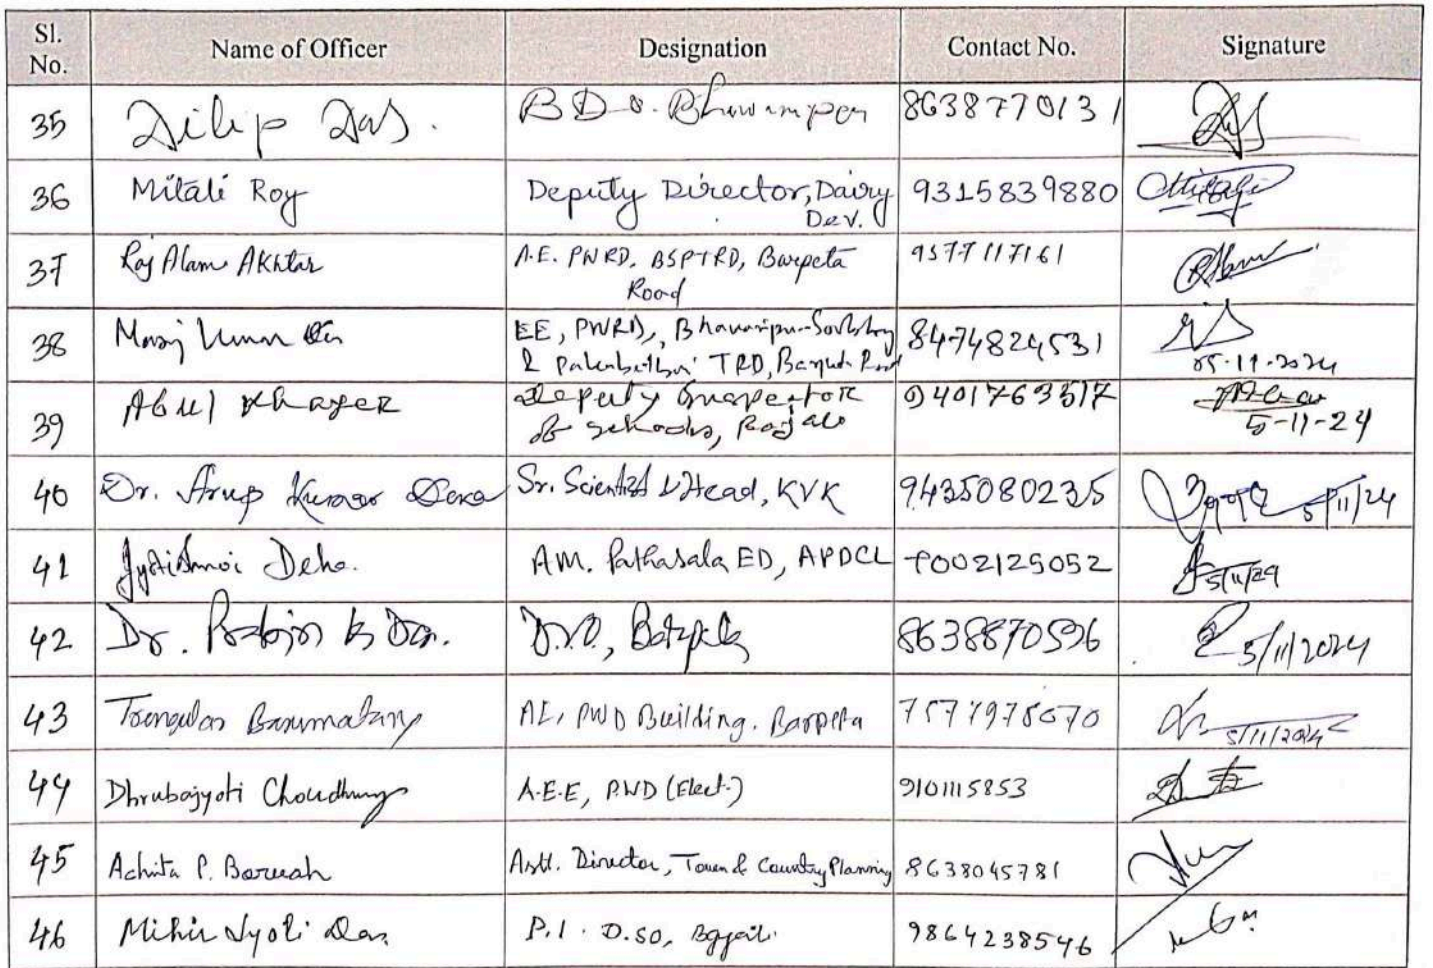 Sl. No. Name of Officer Designation Contact No. Signature
35 Dilip Das. B.D.O. Bhawanipur 8638770131
36 Mitali Roy Deputy Director, Dairy Dev. 9315839880 Mitali
37 Raj Alam Akhtar A.E. PWRD, BSPTRD, Barpeta Road 9577117161
38 Manoj Kumar Das EE, PWRD, Bhawanipur-Sorbhog & TRD, Barpeta Road 8474824531 05-11-2024
39 Abul Khayer Deputy Inspector of Schools, Bajali 9401763517 5-11-24
40 Dr. Arup Kumar Deka Sr. Scientist & Head, KVK 9435080235 5/11/24
41 Jyotishmoi Deka. AM. Pathasala ED, APDCL 7002125052 5/11/24
42 Dr. K Das. Barpeta 8638870596 5/11/2024
43 AE, PWD Building. Barpeta 5/11/2024
44 Dhrubajyoti Choudhury A.E.E, PWD (Elect.) 9101115853
45 Achinta P. Baruah Asstt. Director, Town & Country Planning 8638045781
46 Mihir Jyoti Das P.I. O.SO, 9864238546